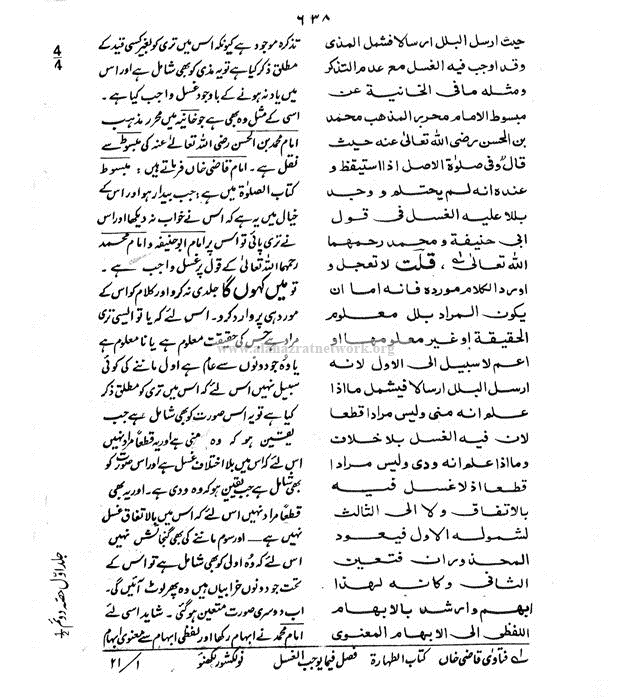 ٦٣٨
حيث ارسل البلل ارسالا فشمل المذى
وقد اوجب فيه الغسل مع عدم التذكر
ومثله مافى الخانية عن
مبسوط الامام محرر المذهب محمد
بن الحسن رضى الله تعالى عنه حيث
قال وفى صلوة الاصل اذا استيقظ و
عنده انه لم يحتلم و وجد
بللا عليه الغسل فى قول
ابى حنيفة و محمد رحمهما
الله تعالى ؎۱، قلت لا تعجل و
اورد الكلام مورده فانه اما ان
يكون المراد بلل معلوم
الحقيقة او غير معلومها او
اعم لاسبيل الى الاول لانه
ارسل البلل ارسالا فيشمل ما اذا
علم انه منى وليس مرادا قطعا
لان فيه الغسل بلا خلاف
وما اذا علم انه ودى وليس مرادا
قطعا اذ لاغسل فيه
بالاتفاق ولا الى الثالث
لشموله الاول فيعود
المحذوران فتعين
الثانى وكانه لهذا
ابهم وارشد بالابهام
اللفظى الى الابهام المعنوى
تذکرہ موجود ہے کیونکہ اس میں تری کو بغیر کسی قید کے
مطلق ذکر کیا ہے تو یہ مذی کو بھی شامل ہے اور اس
میں یاد نہ ہونے کے باوجود غسل واجب کیا ہے ۔
اسی کے مثل وہ بھی ہے جو خانیہ میں محرر مذہب
امام محمد بن الحسن رضی اللہ تعالیٰ عنہ کی مبسوط سے
نقل ہے ۔ امام قاضی خاں فرماتے ہیں : مبسوط
کتاب الصلوٰۃ میں ہے : جب بیدار ہو اور اس کے
خیال میں یہ ہے کہ اس نے خواب نہ دیکھا اور اس
نے تری پائی تو اس پر امام ابوحنیفہ و امام محمد
رحمہما اللہ تعالیٰ کے قول پر غسل واجب ہے ۔
تو میں کہوں گا جلدی نہ کرو اور کلام کو اس کے
مورد ہی پر وارد کرو ۔ اس لئے کہ یا تو ایسی تری
مراد ہے جس کی حقیقت معلوم ہے یا نا معلوم ہے
یا وہ جو دونوں سے عام ہے اول ماننے کی کوئی
سبیل نہیں اس لئے کہ اس میں تری کو مطلق ذکر
کیا ہے تو یہ اس صورت کو بھی شامل ہے جب
یقین ہو کہ وہ منی ہے اور یہ قطعاً مراد نہیں
اس لئے کہ اس میں بلا اختلاف غسل ہے اور اس صورت کو
بھی شامل ہے جب یقین ہو کہ وہ ودی ہے ۔ اور یہ بھی
قطعاً مراد نہیں اس لئے کہ اس میں بالاتفاق غسل
نہیں ہے — اور سوم ماننے کی بھی گنجائش نہیں
اس لئے کہ وہ اولیٰ کو بھی شامل ہے تو اس کے
تحت جو دونوں خرابیاں ہیں وہ پھر لوٹ آئیں گی ۔
اب دوسری صورت متعین ہو گئی ۔ شاید اسی لئے
امام محمد نے ابہام رکھا اور لفظی ابہام سے معنوی ابہام
؎۱ فتاوی قاضی خاں کتاب الطہارۃ فصل فیما یوجب الغسل نولکشور لکھنؤ ۱/ ۲۱
4/4
جلد اول حصہ دوم
www.alahazratnetwork.org